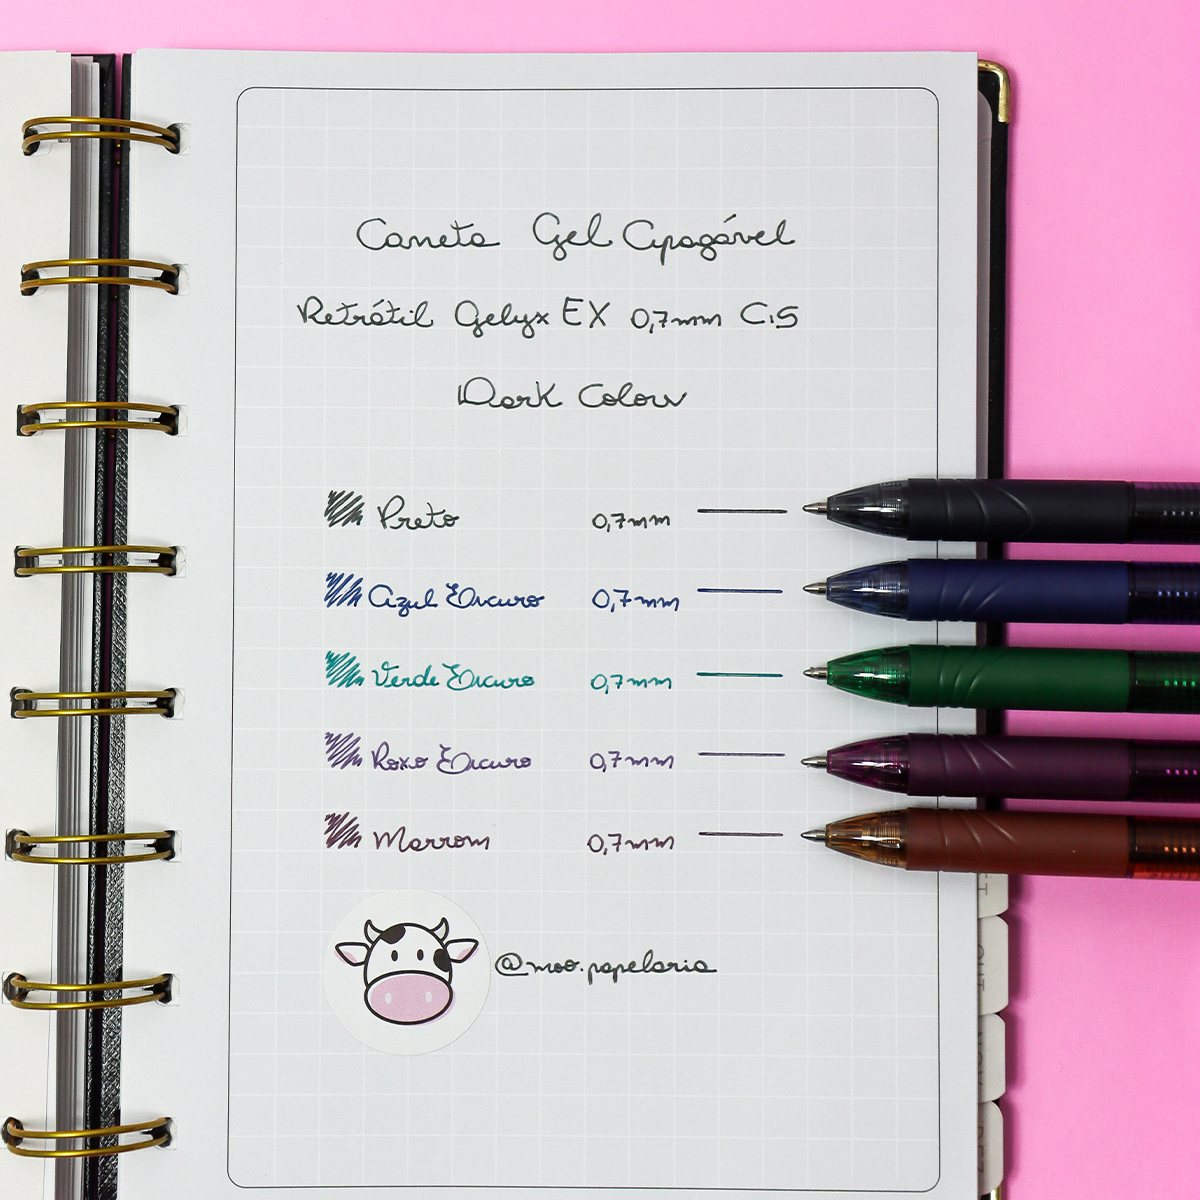 Caneta Gel Apagável
Retrátil Gelyx EX 0,7mm CiS
Dark Colors
Preto 0,7mm
Azul Escuro 0,7mm
Verde Escuro 0,7mm
Roxo Escuro 0,7mm
Marrom 0,7mm
@moo.papelaria
OUT
NOV
DEZ